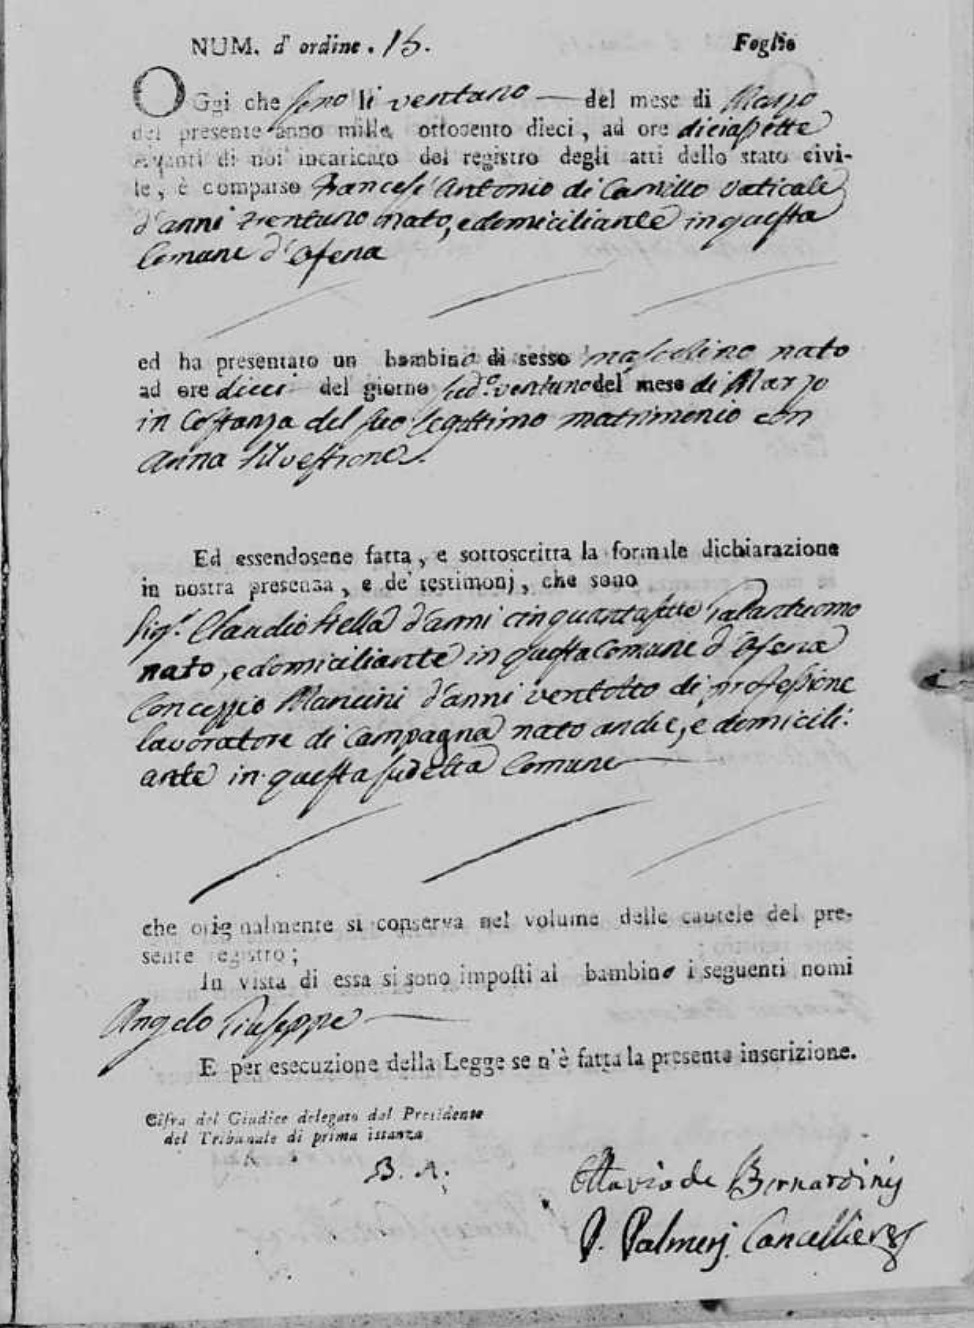 NUM. d' ordine. 15. Foglio
Oggi che sono li ventuno del mese di Marzo
del presente anno mille ottocento dieci, ad ore diciasette
avanti di noi incaricato del registro degli atti dello stato civi-
le, è comparso Francesc' Antonio di Camillo vaticale
d'anni trentuno nato, e domiciliante in questa
Comune d'Ofena
ed ha presentato un bambino di sesso mascolino nato
ad ore dieci del giorno sud.º ventuno del mese di Marzo
in Costanza del suo legittimo matrimonio con
Anna Silvestrone.
Ed essendosene fatta, e sottoscritta la formale dichiarazione
in nostra presenza, e de' testimonj, che sono
Sig.r Claudio Stella d'anni cinquantasette Galantuomo
nato, e domiciliante in questa Comune d'Ofena
Concezzio Mancini d'anni ventotto di professione
lavoratore di Campagna nato anche, e domicili:
ante in questa sudetta Comune
che originalmente si conserva nel volume delle cautele del pre-
sente registro;
In vista di essa si sono imposti al bambino i seguenti nomi
Angelo Giuseppe
E per esecuzione della Legge se n'è fatta la presente inscrizione.
Cifra del Giudice delegato dal Presidente
del Tribunale di prima istanza
B. A.
Ottavio de Bernardinis
P. Palmerj Cancelliere